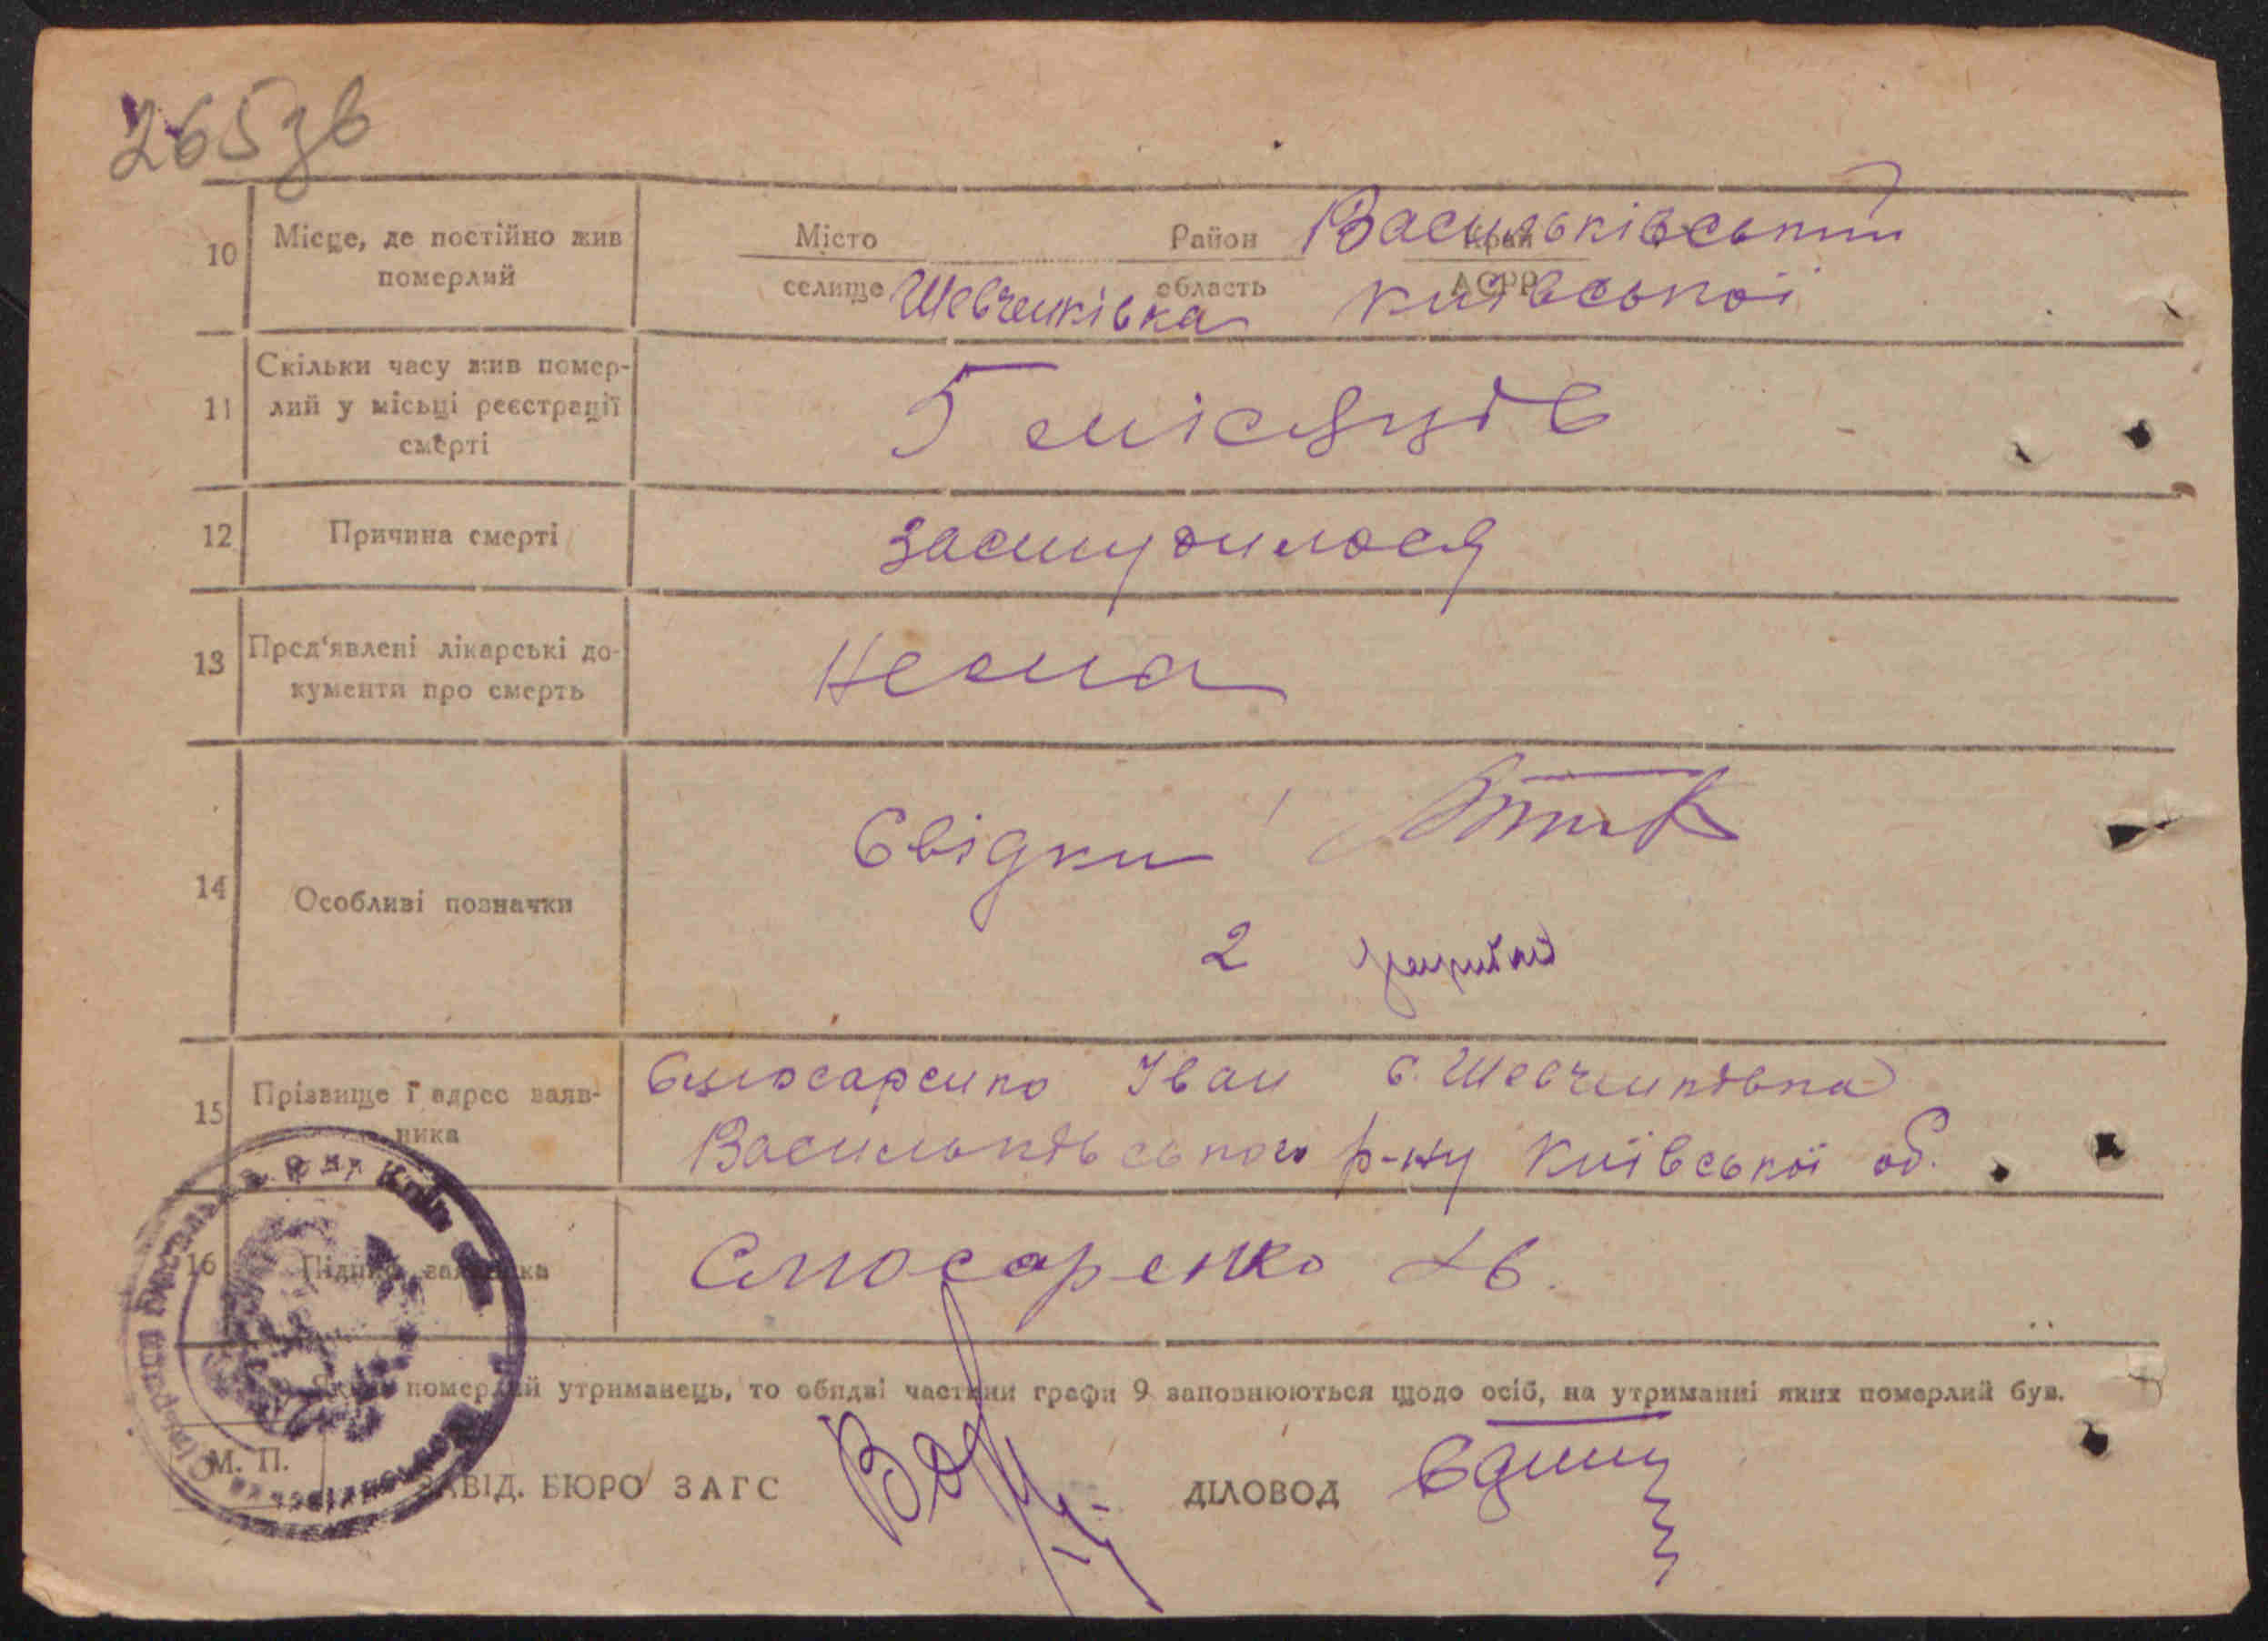 265зв
10 Місце, де постійно жив померлий
Місто Район Васильківський Край
селище Шевченківка область Київської АСРР
11 Скільки часу жив помер-
лий у місьці реєстрації
смерті
5 місяців
12 Причина смерті
застудилося
13 Пред'явлені лікарські до-
кументи про смерть
Нема
14 Особливі позначки
Свідки 1
2
15 Прізвище і адрес заяв-
ника
Слюсаренко Іван с. Шевченківка
Васильківського р-ну Київської об.
16 Підпис заявника
Слюсаренко Ів.
Якщо померлий утриманець, то обидві частини графи 9 заповнюються щодо осіб, на утриманні яких померлий був.
М. П.
ЗАВІД. БЮРО ЗАГС
ДІЛОВОД